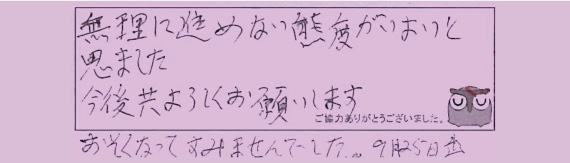 無理に進めない態度がいまいと
思ました
今後共よろしくお願いします
ご協力ありがとうございました。
おそくなってすみませんでした。 9月25日